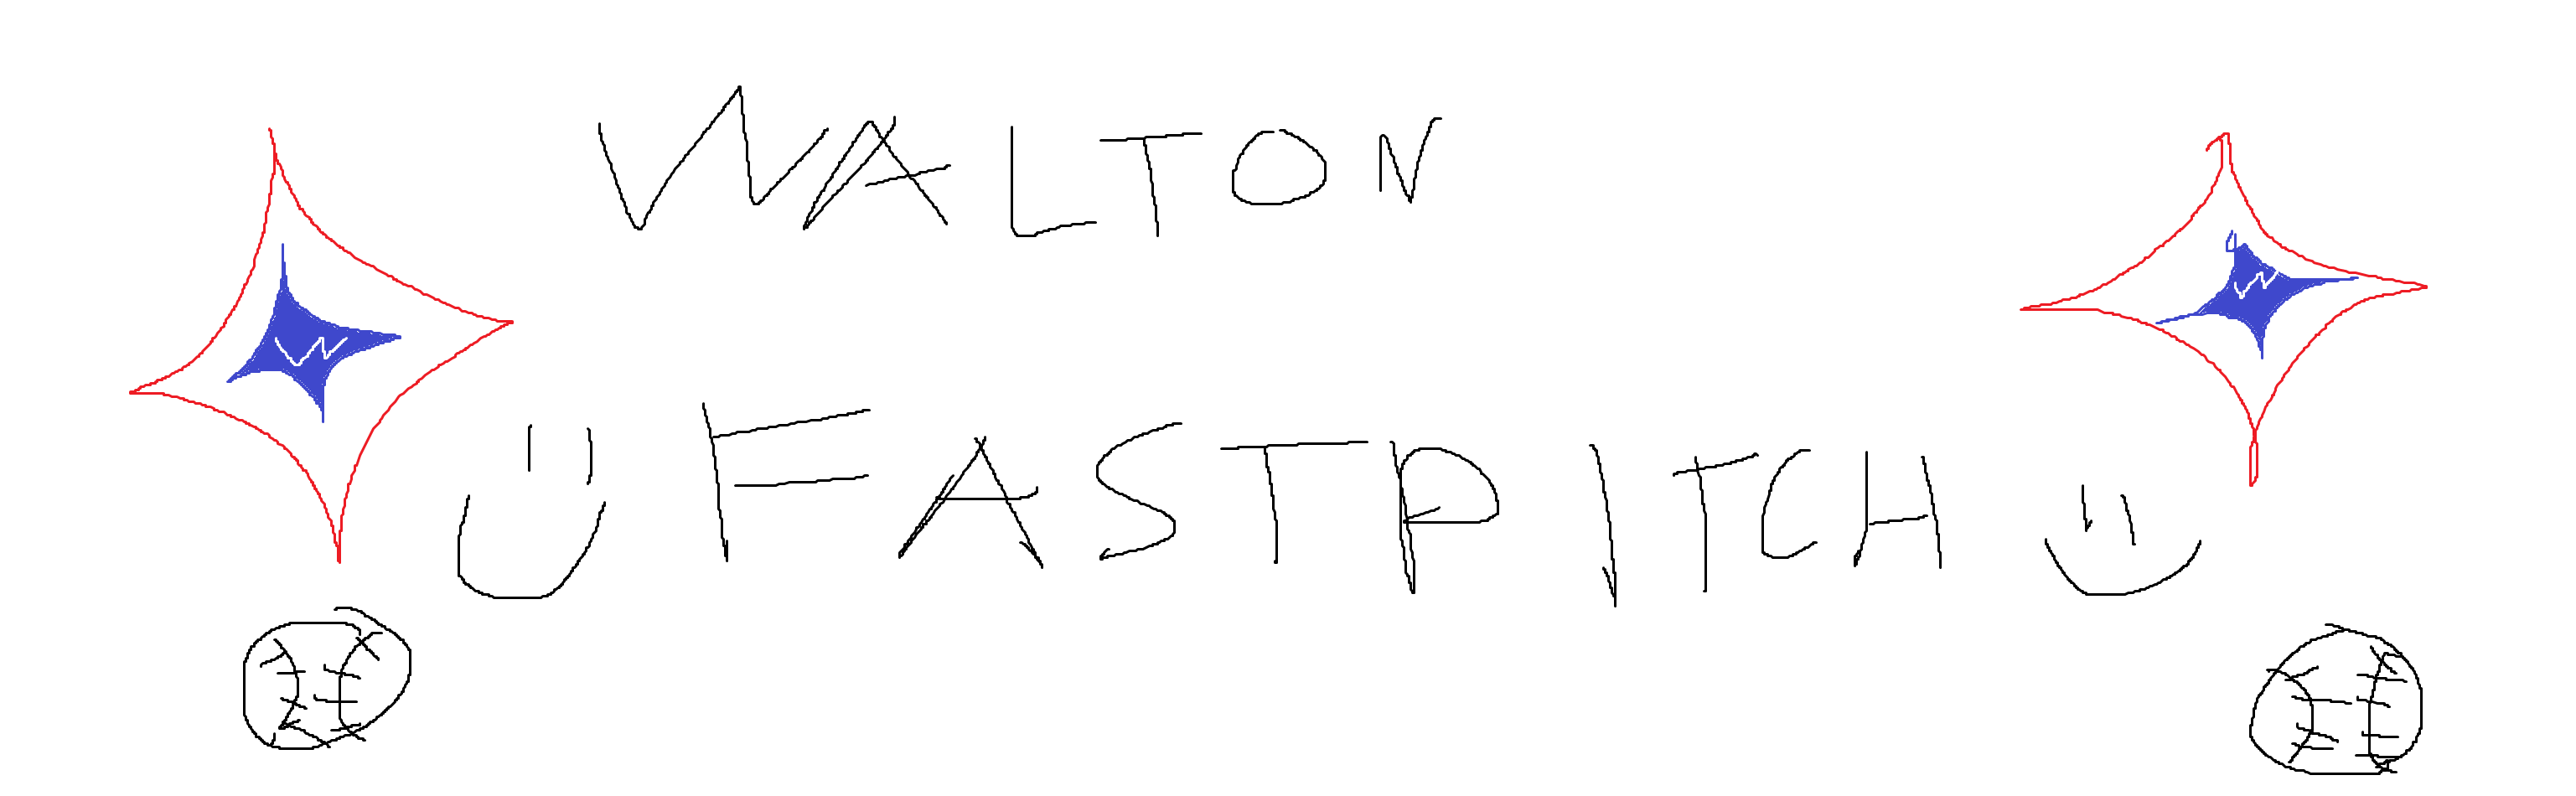 WALTON
W W
FASTPITCH